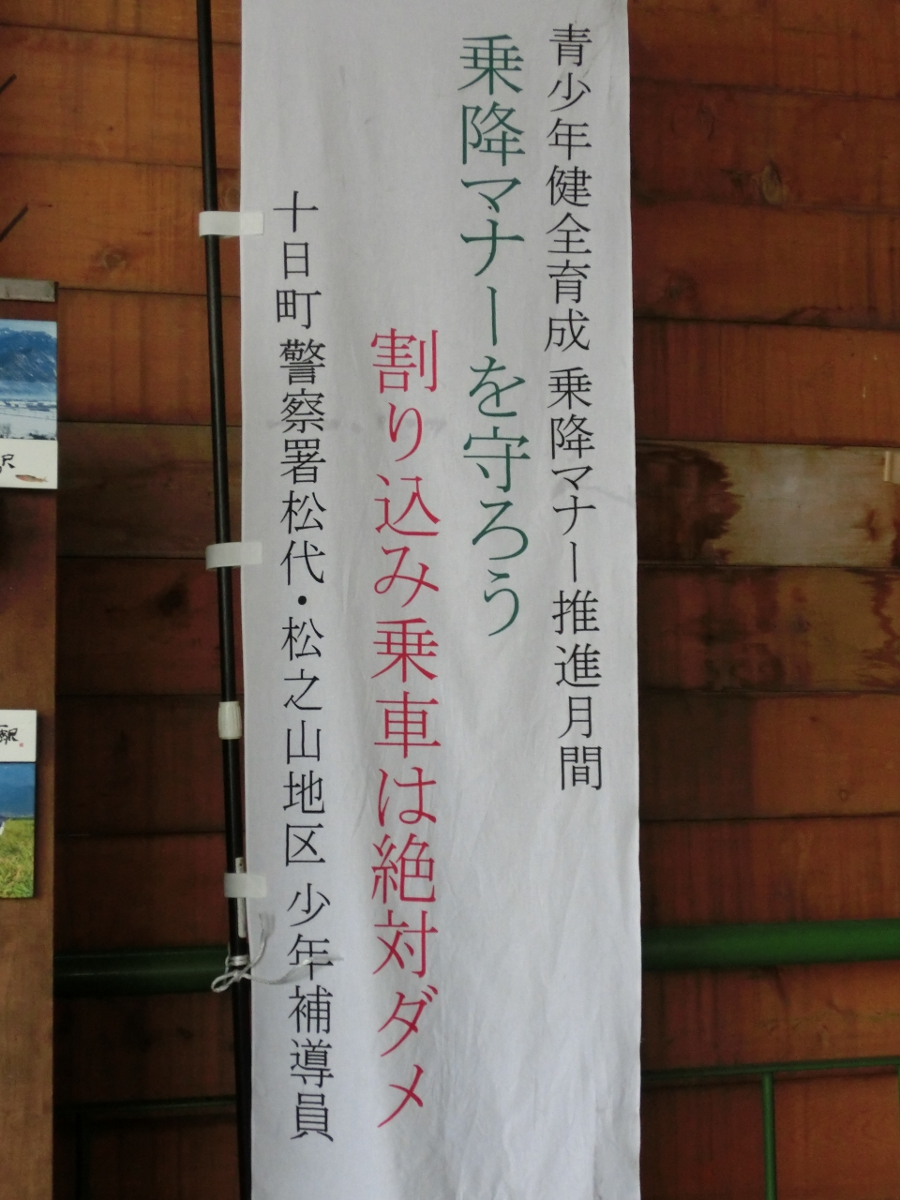 青少年健全育成 乗降マナー推進月間
乗降マナーを守ろう
割り込み乗車は絶対ダメ
十日町警察署松代・松之山地区 少年補導員
駅